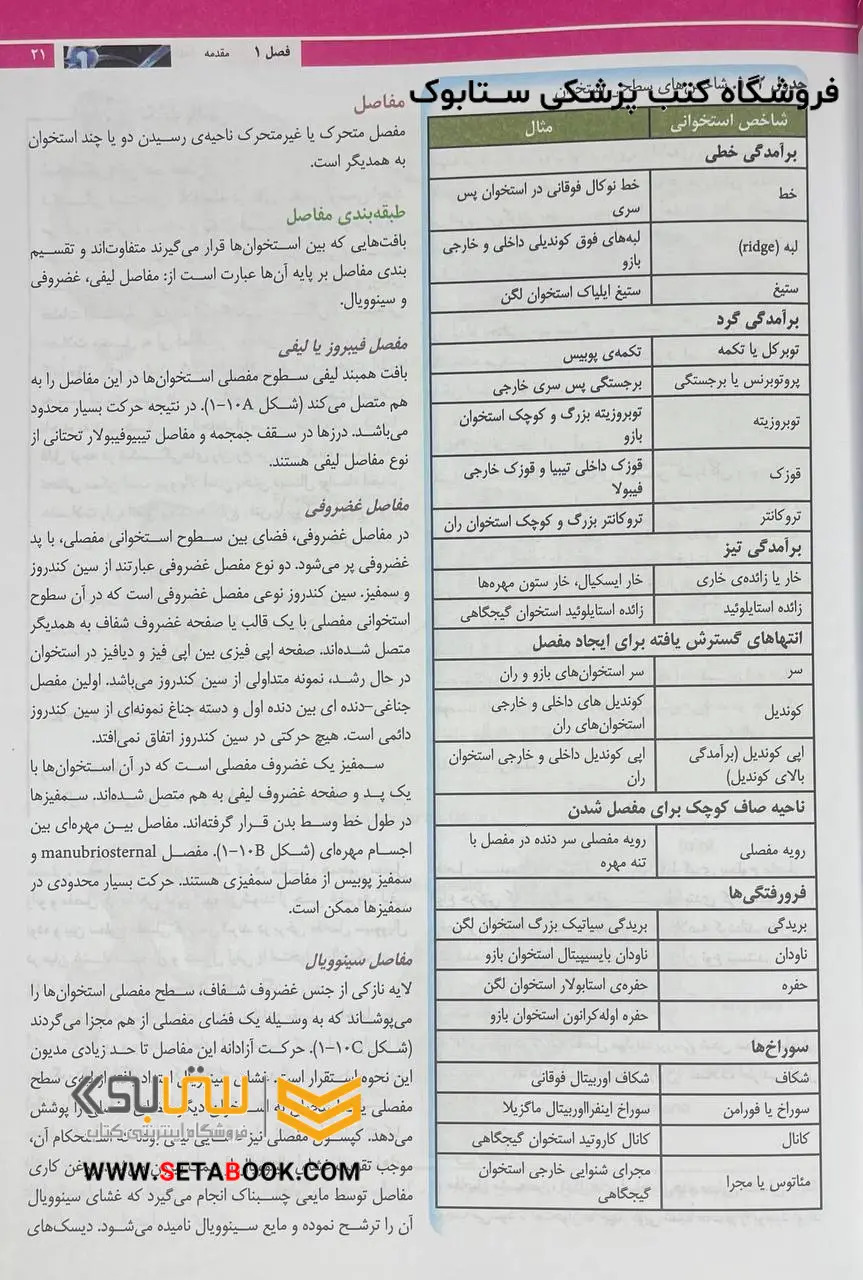 فصل ۱ مقدمه
۲۱
فروشگاه کتب پزشکی ستابوک
جدول
سطحی
شاخص استخوانی مثال
برآمدگی خطی
خط خط نوکال فوقانی در استخوان پس
سری
لبه (ridge) لبه‌های فوق کوندیلی داخلی و خارجی
بازو
ستیغ ستیغ ایلیاک استخوان لگن
برآمدگی گرد
توبرکل یا تکمه تکمه‌ی پوبیس
پروتوبرنس یا برجستگی برجستگی پس سری خارجی
توبروزیته توبروزیته بزرگ و کوچک استخوان
بازو
قوزک قوزک داخلی تیبیا و قوزک خارجی
فیبولا
تروکانتر تروکانتر بزرگ و کوچک استخوان ران
برآمدگی تیز
خار یا زائده‌ی خاری خار ایسکیال، خار ستون مهره‌ها
زائده استایلوئید زائده استایلوئید استخوان گیجگاهی
انتهاهای گسترش یافته برای ایجاد مفصل
سر سر استخوان‌های بازو و ران
کوندیل کوندیل های داخلی و خارجی
استخوان‌های ران
اپی کوندیل (برآمدگی اپی کوندیل داخلی و خارجی استخوان
بالای کوندیل) ران
ناحیه صاف کوچک برای مفصل شدن
رویه مفصلی رویه مفصلی سر دنده در مفصل با
تنه مهره
فرورفتگی‌ها
بریدگی بریدگی سیاتیک بزرگ استخوان لگن
ناودان ناودان بایسیپیتال استخوان بازو
حفره حفره‌ی استابولار استخوان لگن
حفره اوله‌کرانون استخوان بازو
سوراخ‌ها
شکاف شکاف اوربیتال فوقانی
سوراخ یا فورامن سوراخ اینفرااوربیتال ماگزیلا
کانال کانال کاروتید استخوان گیجگاهی
مئاتوس یا مجرا مجرای شنوایی خارجی استخوان
گیجگاهی
مفاصل
مفصل متحرک یا غیرمتحرک ناحیه‌ی رسیدن دو یا چند استخوان
به همدیگر است.
طبقه‌بندی مفاصل
بافت‌هایی که بین استخوان‌ها قرار می‌گیرند متفاوت‌اند و تقسیم
بندی مفاصل بر پایه آن‌ها عبارت است از: مفاصل لیفی، غضروفی
و سینوویال.
مفصل فیبروز یا لیفی
بافت همبند لیفی سطوح مفصلی استخوان‌ها در این مفاصل را به
هم متصل می‌کند (شکل ۱۰A-۱). در نتیجه حرکت بسیار محدود
می‌باشد. درزها در سقف جمجمه و مفاصل تیبیوفیبولار تحتانی از
نوع مفاصل لیفی هستند.
مفاصل غضروفی
در مفاصل غضروفی، فضای بین سطوح استخوانی مفصلی، با پد
غضروفی پر می‌شود. دو نوع مفصل غضروفی عبارتند از سین کندروز
و سمفیز. سین کندروز نوعی مفصل غضروفی است که در آن سطوح
استخوانی مفصلی با یک قالب یا صفحه غضروف شفاف به همدیگر
متصل شده‌اند. صفحه اپی فیزی بین اپی فیز و دیافیز در استخوان
در حال رشد، نمونه متداولی از سین کندروز می‌باشد. اولین مفصل
جناغی-دنده ای بین دنده اول و دسته جناغ نمونه‌ای از سین کندروز
دائمی است. هیچ حرکتی در سین کندروز اتفاق نمی‌افتد.
سمفیز یک غضروف مفصلی است که در آن استخوان‌ها با
یک پد و صفحه غضروف لیفی به هم متصل شده‌اند. سمفیزها
در طول خط وسط بدن قرار گرفته‌اند. مفاصل بین مهره‌ای بین
اجسام مهره‌ای (شکل ۱۰B-۱). مفصل manubriosternal و
سمفیز پوبیس از مفاصل سمفیزی هستند. حرکت بسیار محدودی در
سمفیزها ممکن است.
مفاصل سینوویال
لایه نازکی از جنس غضروف شفاف، سطح مفصلی استخوان‌ها را
می‌پوشاند که به وسیله یک فضای مفصلی از هم مجزا می‌گردند
(شکل ۱۰C-۱). حرکت آزادانه این مفاصل تا حد زیادی مدیون
این نحوه استقرار است. سطح
مفصلی را پوشش
می‌دهد. کپسول مفصلی نیز استحکام آن،
موجب کاری
مفاصل توسط مایعی چسبناک انجام می‌گیرد که غشای سینوویال
آن را ترشح نموده و مایع سینوویال نامیده می‌شود. دیسک‌های
ستابوک
فروشگاه اینترنتی کتاب
WWW.SETABOOK.COM